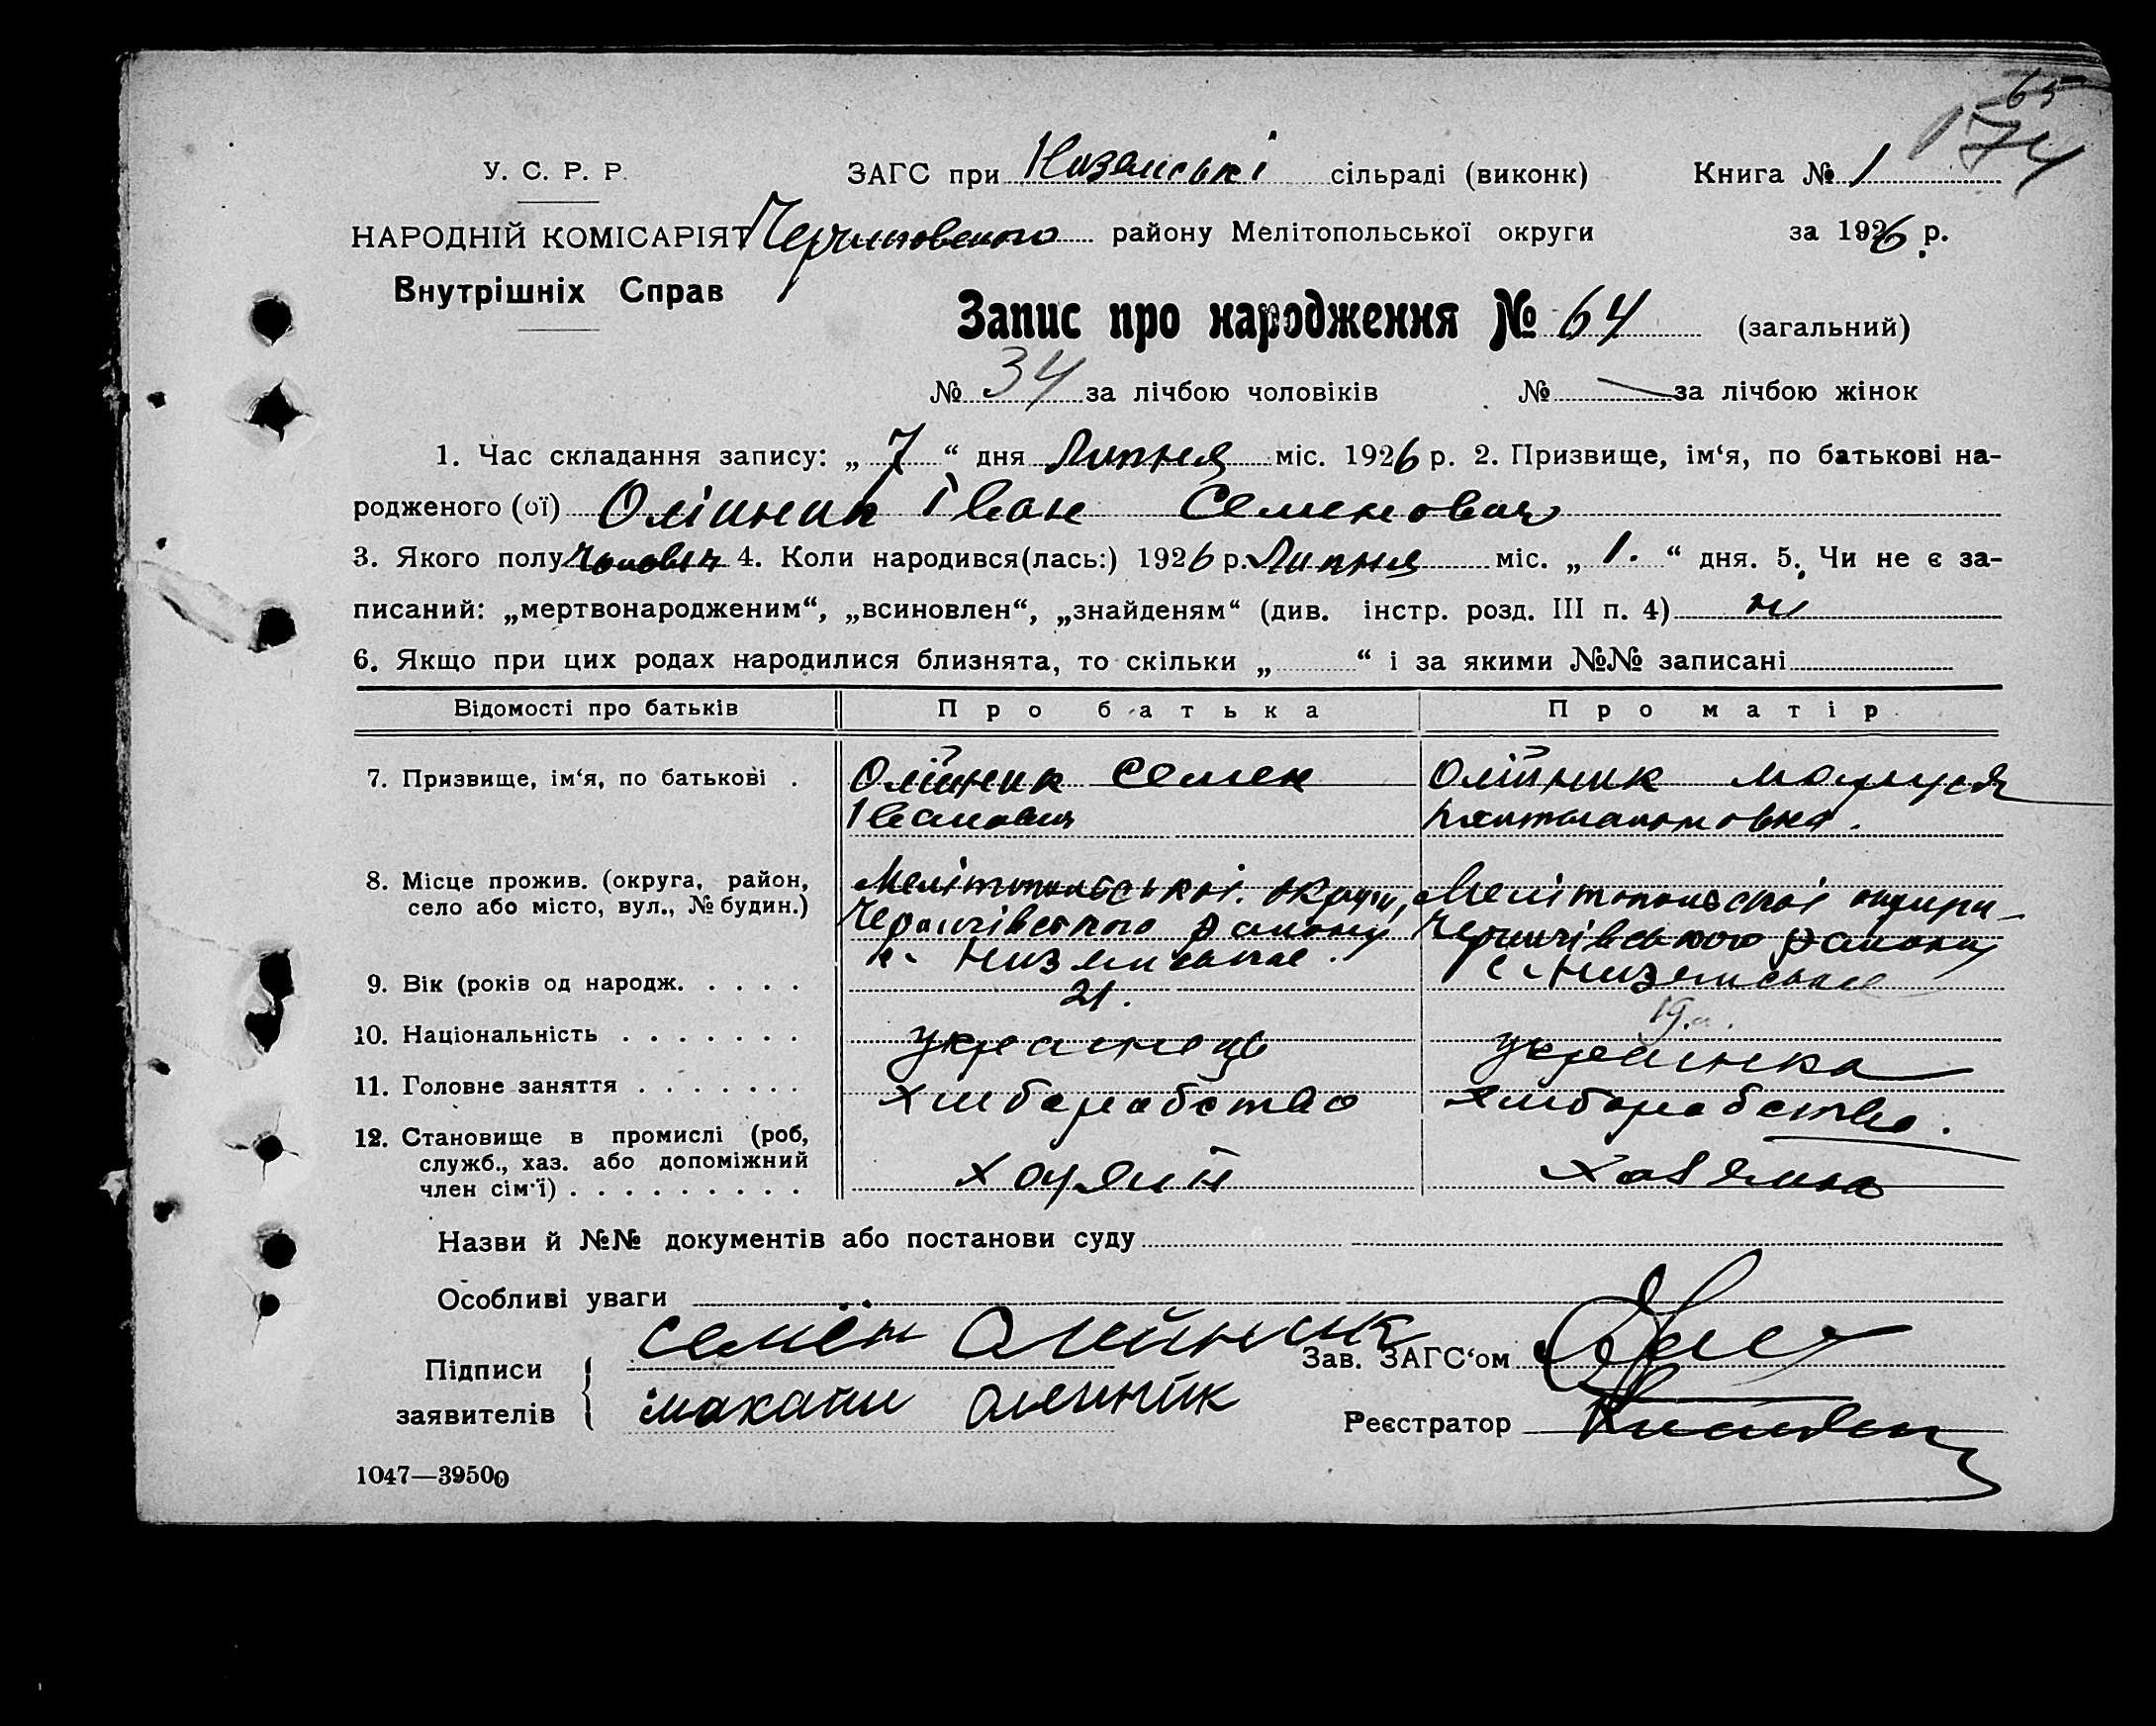 65
74
У. С. Р. Р. ЗАГС при сільраді (виконк) Книга № 1
НАРОДНІЙ КОМІСАРІЯТ району Мелітопольської округи за 1926 р.
Внутрішніх Справ
Запис про народження № 64 (загальний)
№ 34 за лічбою чоловіків № — за лічбою жінок
1. Час складання запису: „7“ дня Липня міс. 1926 р. 2. Призвище, ім‘я, по батькові на-
родженого (ої) Олійник Іван Семенович
3. Якого полу Чоловік 4. Коли народився(лась:) 1926 р. Липня міс. „1.“ дня. 5. Чи не є за-
писаний: „мертвонародженим“, „всиновлен“, „знайденям“ (див. інстр. розд. III п. 4) ні
6. Якщо при цих родах народилися близнята, то скільки „ “ і за якими №№ записані
Відомості про батьків Про батька Про матір
7. Призвище, ім‘я, по батькові . Олійник Семен Олійник Маруся
Іванович
8. Місце прожив. (округа, район, Мелітопольської округи, Мелітопольскої округи
село або місто, вул., № будин.) Чернігівського району Чернігівського району
9. Вік (років од народж. . . . . 21. 19.
10. Національність . . . . . . . українець українка
11. Головне заняття . . . . . . . хліборобство хліборобство.
12. Становище в промислі (роб,
служб., хаз. або допоміжний хазяін хазяйка
член сім‘ї) . . . . . . . . .
Назви й №№ документів або постанови суду
Особливі уваги
Підписи семён Олейник Зав. ЗАГС‘ом
заявителів олейник Реєстратор
1047—39500